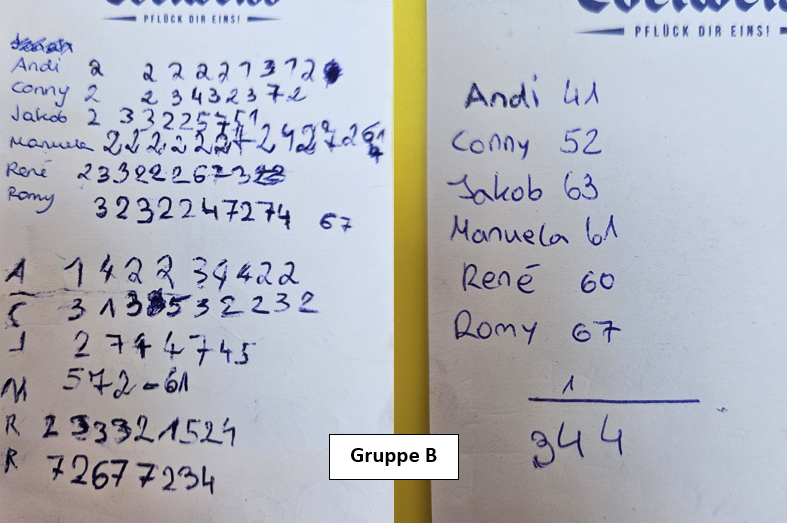 PFLÜCK DIR EINS!
Andi 2 2 2 2 2 1 3 1 2
Conny 2 2 3 4 3 2 3 7 2
Jakob 2 3 3 2 2 5 7 5 1
Manuela 2 2 2 2 2 2 7 - 2 4 2 7 2 6 1
René 2 3 3 2 2 2 6 7 3
Romy 3 2 3 2 2 4 7 2 7 4 67
A 1 4 2 2 3 4 4 2 2
C 3 1 3 5 3 2 2 3 2
J 2 7 4 4 7 4 5
M 5 7 2 - 61
R 2 3 3 3 2 1 5 2 4
R 7 2 6 7 7 2 3 4
Edelweiss
PFLÜCK DIR EINS!
Andi 41
Conny 52
Jakob 63
Manuela 61
René 60
Romy 67
1
344
Gruppe B